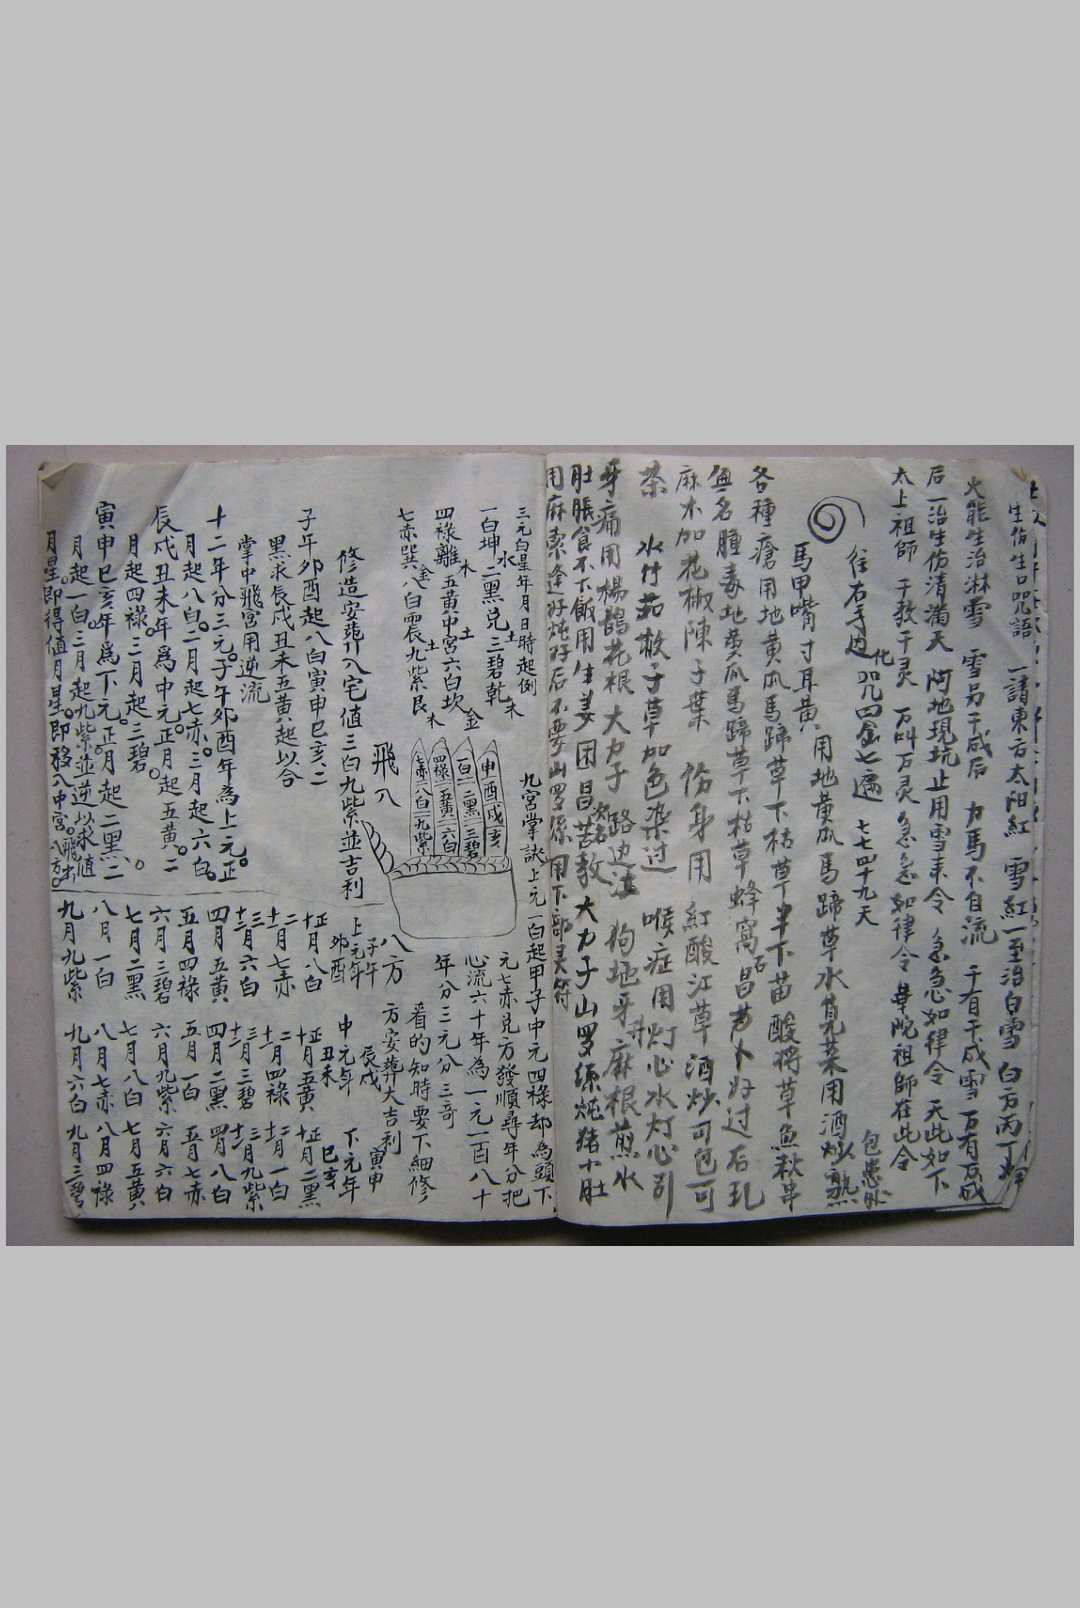 生咒語 一請東方太阳紅 雪紅一至治白雪 白方丙丁
火能生治淋雪 雪另千成后 力馬不自流 千有千成雪 万有万成
后一治生仿清满天 阿地現坑止用雪来令 急急如律令 天此如下
太上祖師 千教千灵 万叫万灵 急急如律令 華陀祖師在此令
往右手边 化咒四金七遍 七七四十九天
馬甲嘴寸耳黄 用地黄瓜馬蹄草水莧菜用酒炒熟 包患处
各種瘡用地黄瓜馬蹄草下枯草半下苗酸将草魚秋串
無名腫毒地黄瓜馬蹄草下枯草蜂窩石昌芦卜好过后玑
麻木加花椒陳子葉 傷身用紅酸江草酒炒可包可
茶 水竹茹 子草加色染过 喉症用灯心水灯心引
牙痛用楊鵲花根 大力子 路边 狗地牙麻根煎水
肚脹食不下飯用生姜困昌苦教大力子山罗 炖猪小肚
三元白星年月日時起例
一白坤水二黑兑土三碧乾木
四綠離木五黄中宫土六白坎金
七赤巽金八白震土九紫艮木
九宫掌訣
上元一白起甲子中元四祿却為頭下
元七赤兑方發順尋年分把
心流六十年為一元一百八十
年分三元分三奇
看的知時要下細修
申 酉 戌 亥
一白 二黑 三碧
四祿 五黄 六白
七赤 八白 九紫
飛八
八方
方安葬大吉利
修造安葬八宅值三白九紫並吉利
子午卯酉起八白寅申巳亥二
黑求辰戌丑未五黄起以合
掌中飛宫用逆流
十二年分三元。子午夘酉年為上元。正
月起八白。二月起七赤。三月起六白。
辰戌丑未年爲中元。正月起五黄。二
月起四祿。三月起三碧。
寅申巳亥年爲下元。正月起二黑。二
月起一白。三月起九紫並逆以求值
月星。即得值月星。即移入中宫。飛出八方。
上元年 子午 卯酉
正十月八白
二十一月七赤
三十二月六白
四月五黄
五月四祿
六月三碧
七月二黑
八月一白
九月九紫
中元年 辰戌 丑未
正十月五黄
二十一月四祿
三十二月三碧
四月二黑
五月一白
六月九紫
七月八白
八月七赤
九月六白
下元年 寅申 巳亥
正十月二黑
二十一月一白
三十二月九紫
四月八白
五月七赤
六月六白
七月五黄
八月四祿
九月三碧